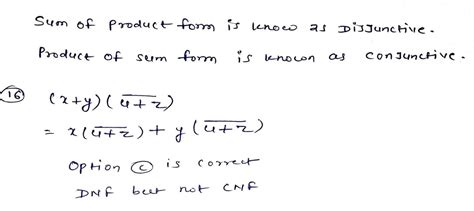 Sum of Product form is know as Disjunctive.
Product of sum form is known as conjunctive.
16 (x+y)(u̅+̅z̅)
= x(u̅+̅z̅) + y(u̅+̅z̅)
Option ⓒ is correct
DNF but not CNF